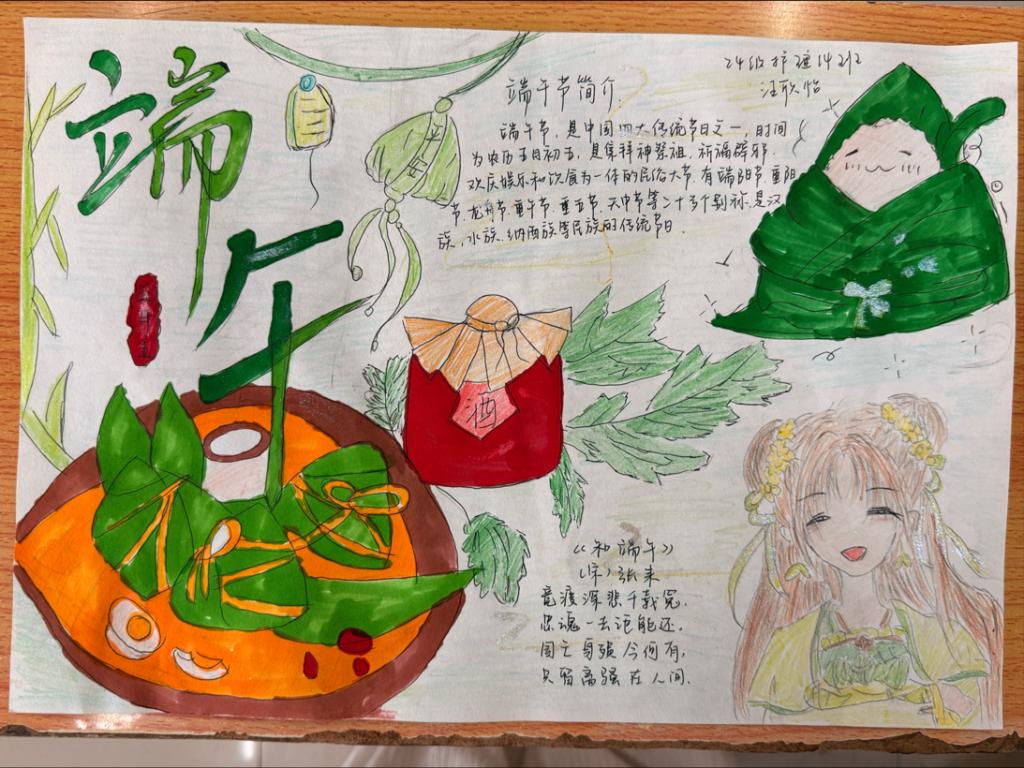 端午
端午节简介
24级护理14班
汪欣怡
端午节,是中国四大传统节日之一,时间
为农历五月初五,是集拜神祭祖,祈福辟邪.
欢庆娱乐和饮食为一体的民俗大节.有端阳节.重阳
节.龙舟节.重午节.重五节.天中节等二十多个别称.是汉
族、水族、纳西族等民族的传统节日.
酒
《和端午》
(宋)张耒
竞渡深悲千载冤,
忠魂一去讵能还,
国亡身殒今何有,
只留离骚在人间.